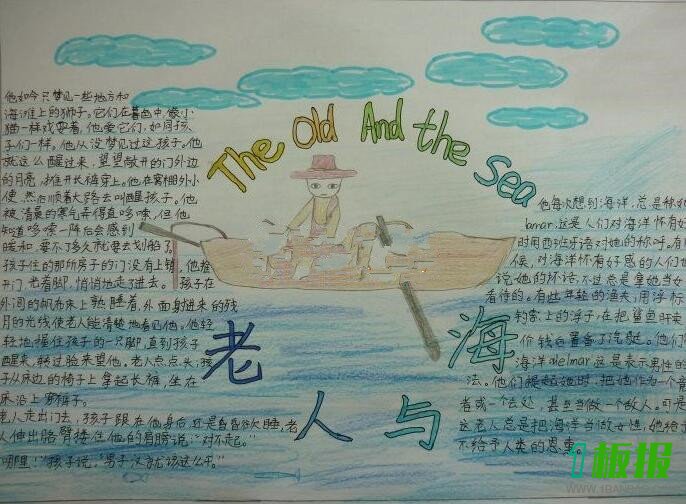 The Old And the Sea
他如今只梦见一些地方和
海滩上的狮子。它们在暮色中像小
猫一样戏耍着，他爱它们，如同孩
子们一样。他从没梦见过这孩子。他
就这么醒过来，望望敞开的门外边
的月亮，摊开长裤穿上。他在窝棚外小
便，然后顺着大路去叫醒孩子。他
被清晨的寒气弄得直哆嗦，但他
知道哆嗦一阵后会感到
暖和，要不了多久就要去划船了
孩子住的那所房子的门没有上锁，他推
开门，光着脚，悄悄地走了进去。孩子在
外间的帆布床上熟睡着，外面射进来的残
月的光线，使老人能清楚地看见他。他轻
轻地握住孩子的一只脚，直到孩子
醒来，转过脸来望他。老人点点头，孩
子从床边的椅子上拿起长裤，坐在
床沿上穿裤子。
老人走出门去，孩子跟在他身后，还是昏昏欲睡，老
人伸出胳臂搂住他的肩膀说：“对不起。”
哪里！”孩子说，“男子汉就该这么干。”
他每次想到海洋，总是称她
lamar，这是人们对海洋怀有好
时用西班牙语对她的称呼。有
候，对海洋怀有好感的人们也
说她的坏话，不过总是拿她当女
看待的。有些年轻的渔夫，用浮标
钓索上的浮子，在把鲨鱼肝卖
价钱后置备了汽艇。他们
海洋 alelmar 这是表示男性的
法。他们提起她时，把她作一个竞
者或一个去处，甚至当做一个敌人。可是
这老人总是把海洋当做女性，她给予
不给予人类的恩
老人与海
1板报